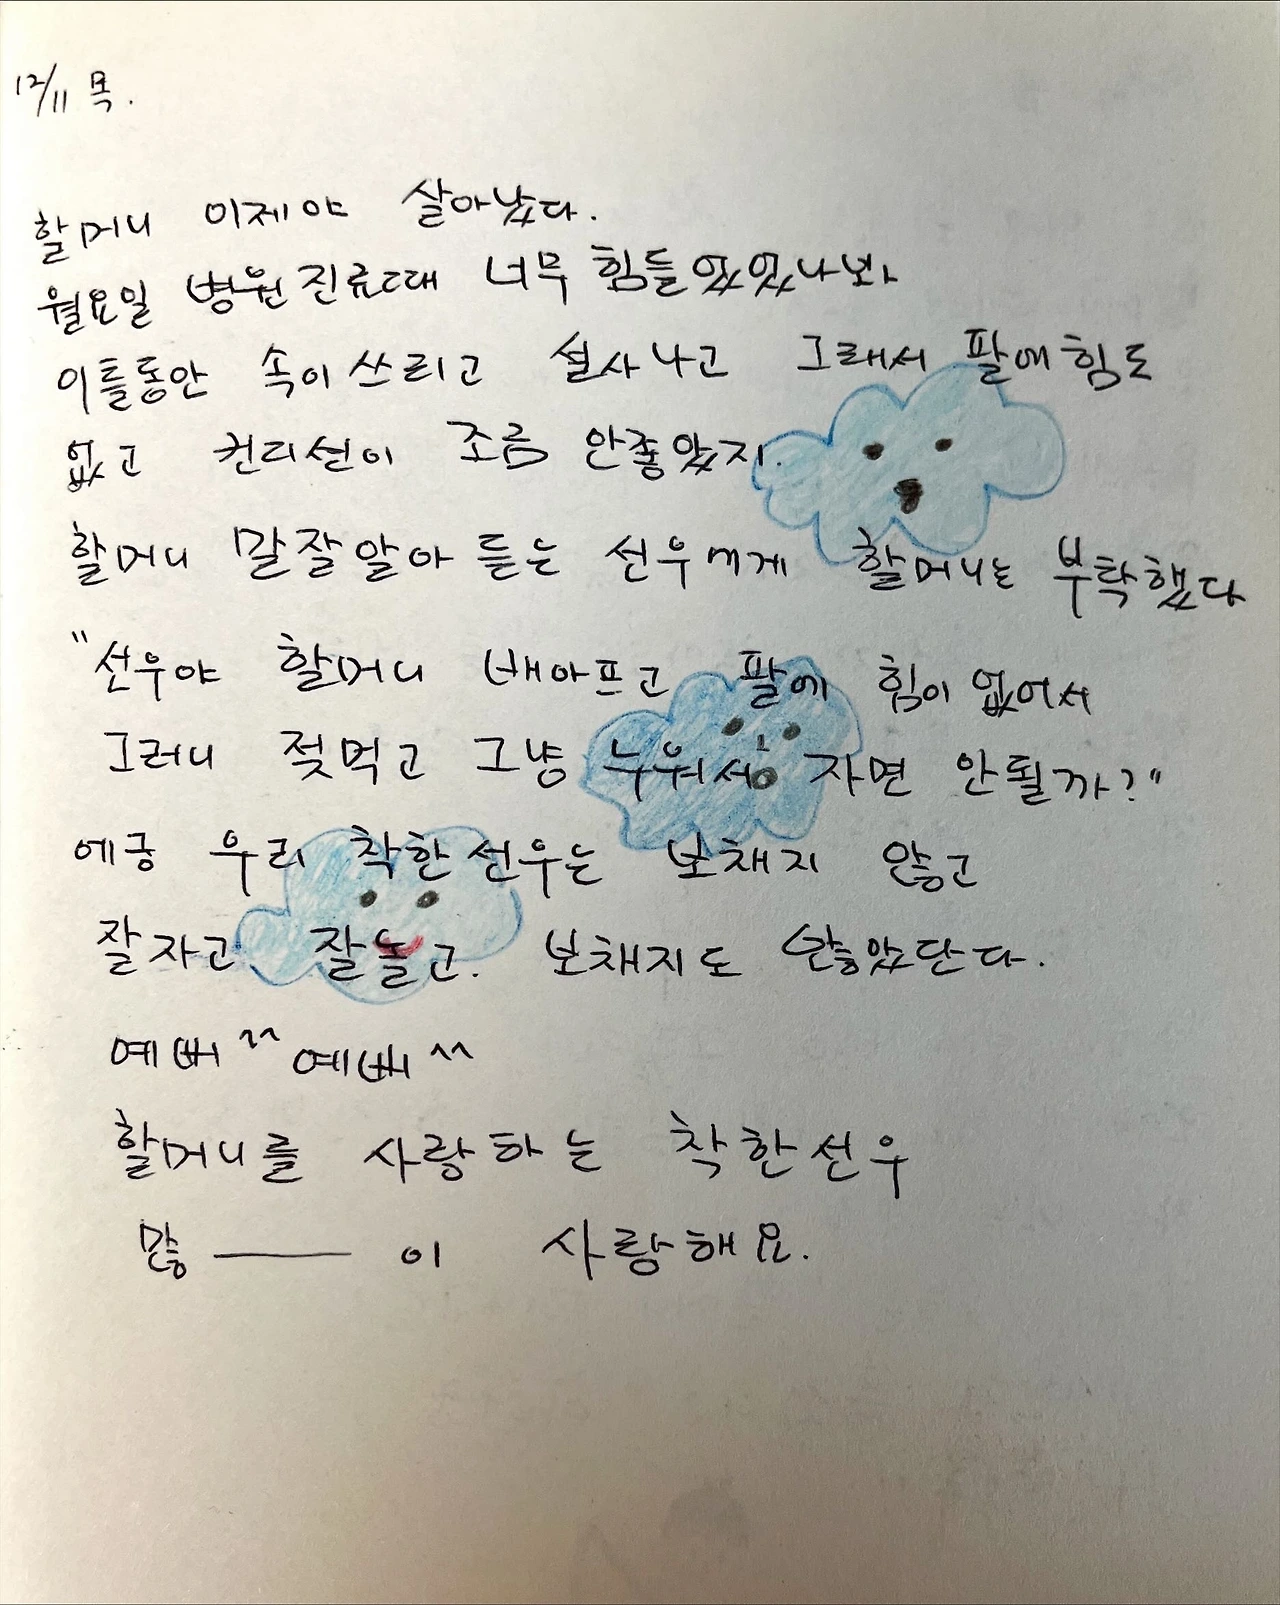 12/11 목.
할머니 이제야 살아났다.
월요일 병원진료때 너무 힘들었었나봐
이틀동안 속이쓰리고 설사나고 그래서 팔에힘도
없고 컨디션이 조름 안좋았지.
할머니 말잘알아 듣는 선우에게 할머니는 부탁했다
"선우야 할머니 배아프고 팔에 힘이 없어서
그러니 젖먹고 그냥 누워서 자면 안될까?"
에궁 우리 착한선우는 보채지 않고
잘자고 잘놀고. 보채지도 않았단다.
예뻐^^ 예뻐^^
할머니를 사랑하는 착한선우
많——이 사랑해요.